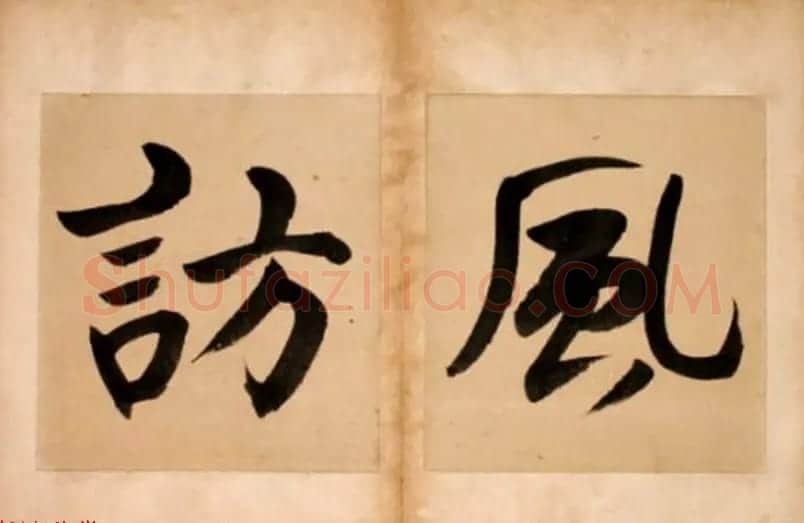 風
訪
Shufaziliao.COM